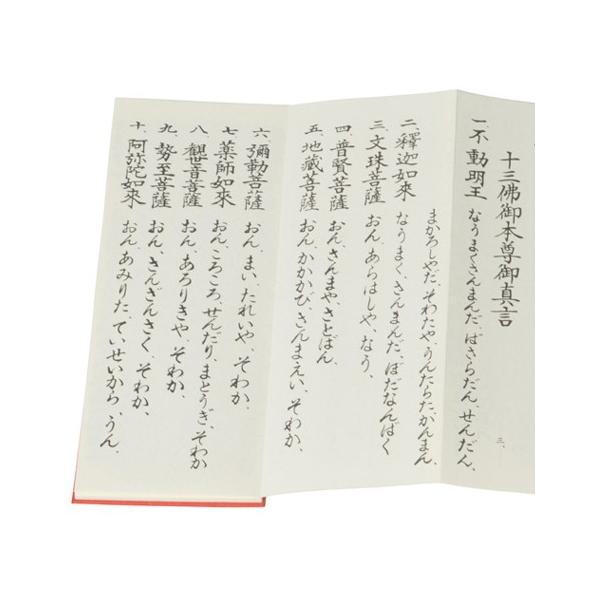 十三佛御本尊御真言
一、不動明王 なうまくさんまんだ、ばさらだん、せんだん、
まかろしやだ、そわたや、うんたらた、かんまん、
二、釋迦如来 なうまく、さんまんだ、ぼだなんばく
三、文珠菩薩 おん、あらはしや、なう、
四、普賢菩薩 おん、さんまや、さとばん、
五、地蔵菩薩 おん、かかかび、さんまえい、そわか、
六、彌勒菩薩 おん、まい、たれいや、そわか、
七、薬師如來 おん、ころころ、せんだり、まとうぎ、そわか
八、觀世音菩薩 おん、あろりきや、そわか、
九、勢至菩薩 おん、さんざんさく、そわか、
十、阿弥陀如來 おん、あみりた、ていせいから、うん、
三、